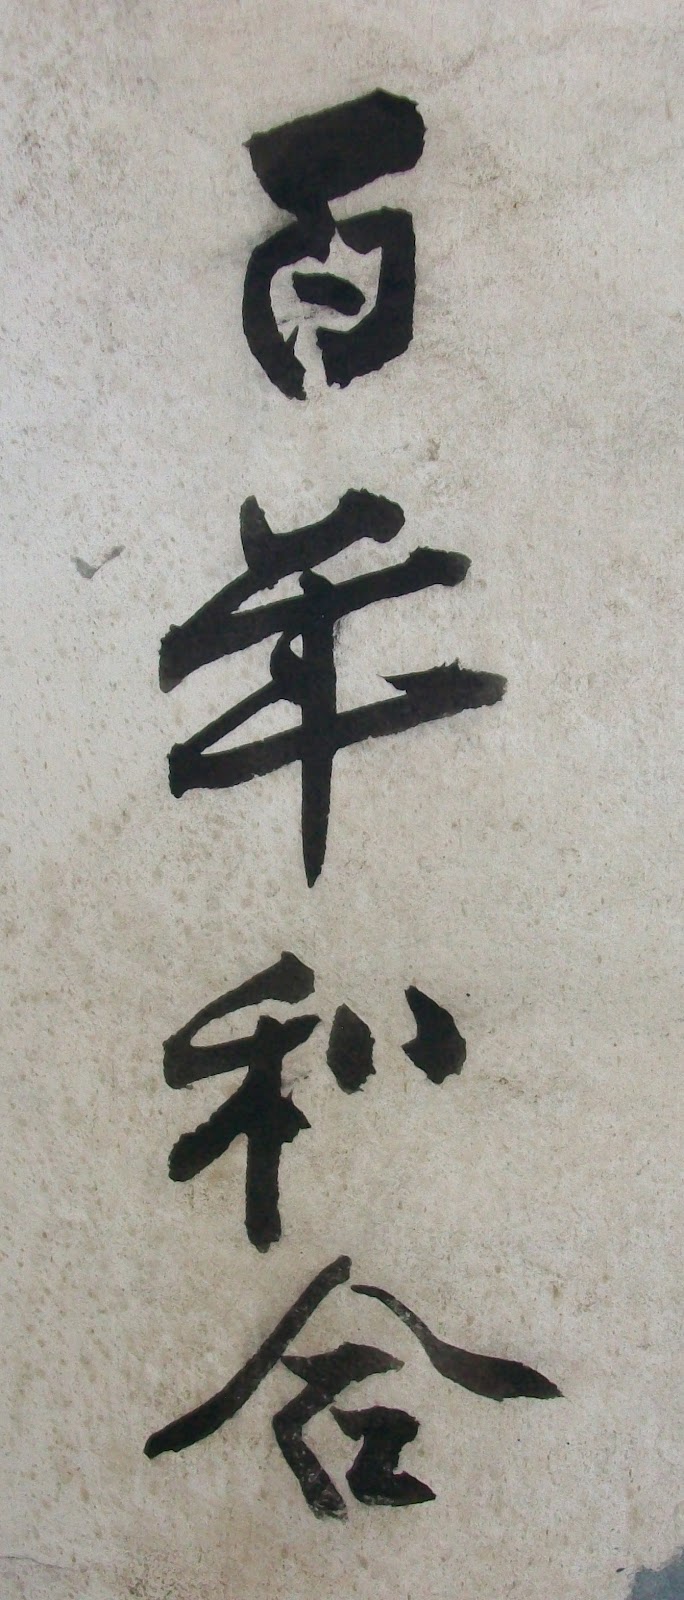 百年和合